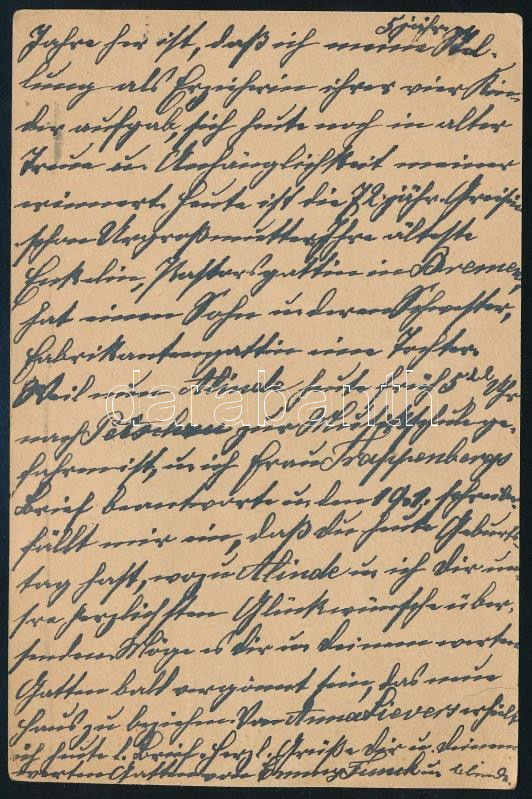 5 jähr.
Jahre her ist, daß ich meine Stel-
lung als Erzieherin ihrer vier Kin-
der aufgab, sich heute noch in alter
Treue u. Anhänglichkeit meiner
erinnert. Heute ist die 72 jähr. Greisin
schon Urgroßmutter, Ihre älteste
Enkelin, Pastorsgattin in Bremen,
hat einen Sohn u. deren Schwester,
Fabrikantengattin eine Tochter.
Weil nun Alinde heute früh 5 Uhr
nach Petschau zur Musikschule ge-
fahren ist, u. ich Frau Trappenbergs
Brief beantworte u. den 19.1. schreibe,
fällt mir ein, daß du heute Geburts-
tag hast, wozu Alinde u. ich Dir un-
sre herzlichsten Glückwünsche über-
senden. Möge es Dir u. Deinem werten
Gatten bald vergönnt sein, das neue
Haus zu beziehen. Von Anna Sievers erhielt
ich heute l. Brief. Herzl. Grüße Dir u. Deinem
werten Gatten von Emmy Funck u. Alinde.
darabanth